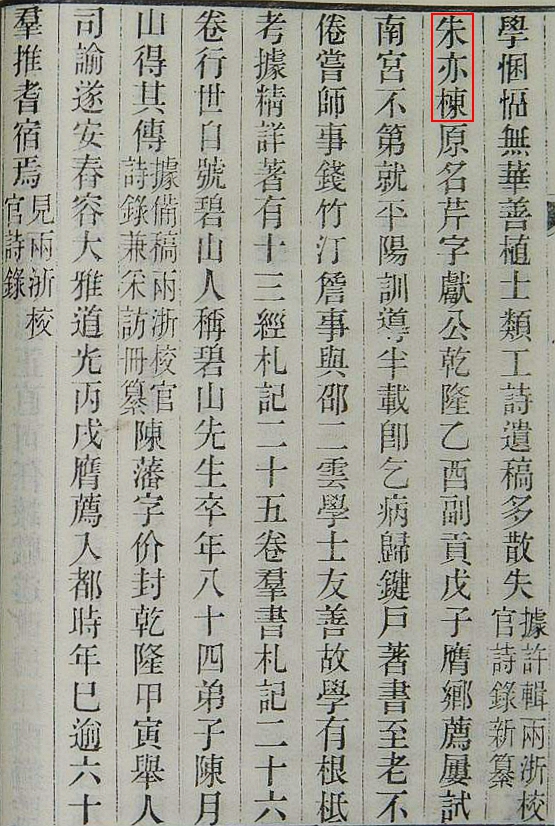 學悃愊無華善植士類工詩遺稿多散失據許輯兩浙校官詩錄新纂
朱亦棟原名芹字獻公乾隆乙酉副貢戊子膺鄉薦屢試
南宮不第就平陽訓導半載卽乞病歸鍵戶著書至老不
倦嘗師事錢竹汀詹事與邵二雲學士友善故學有根柢
考據精詳著有十三經札記二十五卷羣書札記二十六
卷行世自號碧山人稱碧山先生卒年八十四弟子陳月
山得其傳據備稿兩浙校官詩錄兼采訪冊纂陳藩字价封乾隆甲寅舉人
司諭遂安春容大雅道光丙戌膺薦入都時年巳逾六十
羣推耆宿焉見兩浙校官詩錄